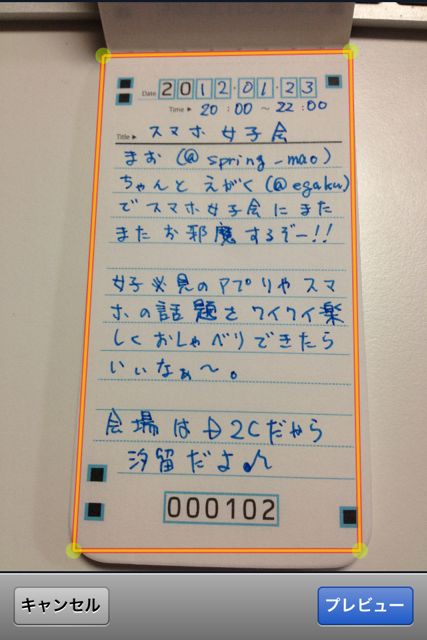 Date 2012.01.23
Time ▶ 20:00 ~ 22:00
Title ▶ スマホ 女子会
まお (@spring_mao)
ちゃんと えがく (@egaku)
で スマホ女子会 に また
また お邪魔するぞー!!
女子必見のアプリや スマ
ホの話題を ワイワイ楽
しく おしゃべりできたら
いいなぁ〜。
会場は D2Cだから
汐留だよ♪
000102
キャンセル
プレビュー